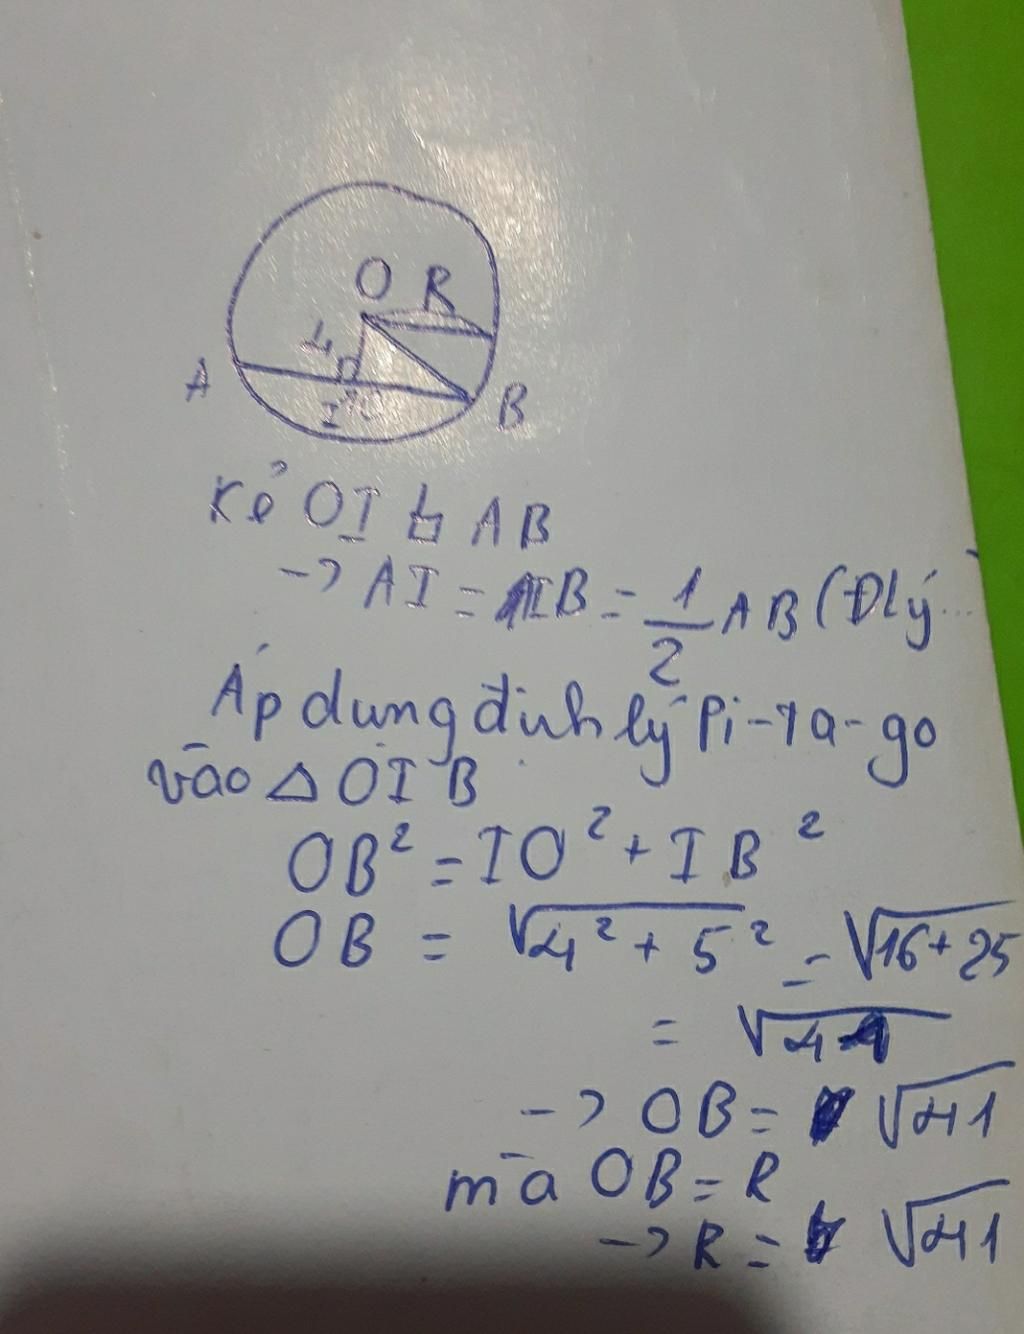 O R
4
A
I 10
B
Kẻ OI ⊥ AB
-> AI = IB = 1/2 AB (Đlý...
Áp dụng định lý Pi-ta-go
vào △ OIB
OB² = IO² + IB²
OB = √4² + 5² = √16+25
= √41
-> OB = √41
mà OB = R
-> R = √41